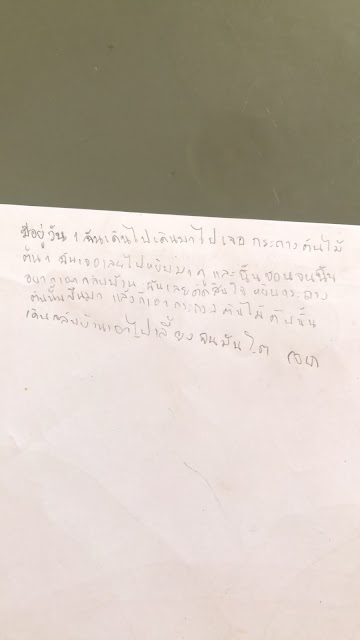 มีอยู่วัน 1 ฉันเดินไปเดินมาไปเจอ กระถางต้นไม้
ต้น 1 ฉันเจอเลยไปหยิบมาดู และนั้น ชอบจนฉัน
อยากเอากลับบ้าน ฉันเลยตัดสินใจ หยิบกระถาง
ต้นนั้นขึ้นมา แล้วก็เอากระถาง ต้นไม้ ต้นนั้น
เดินกลับบ้านเอาไปเลี้ยง จนมันโต